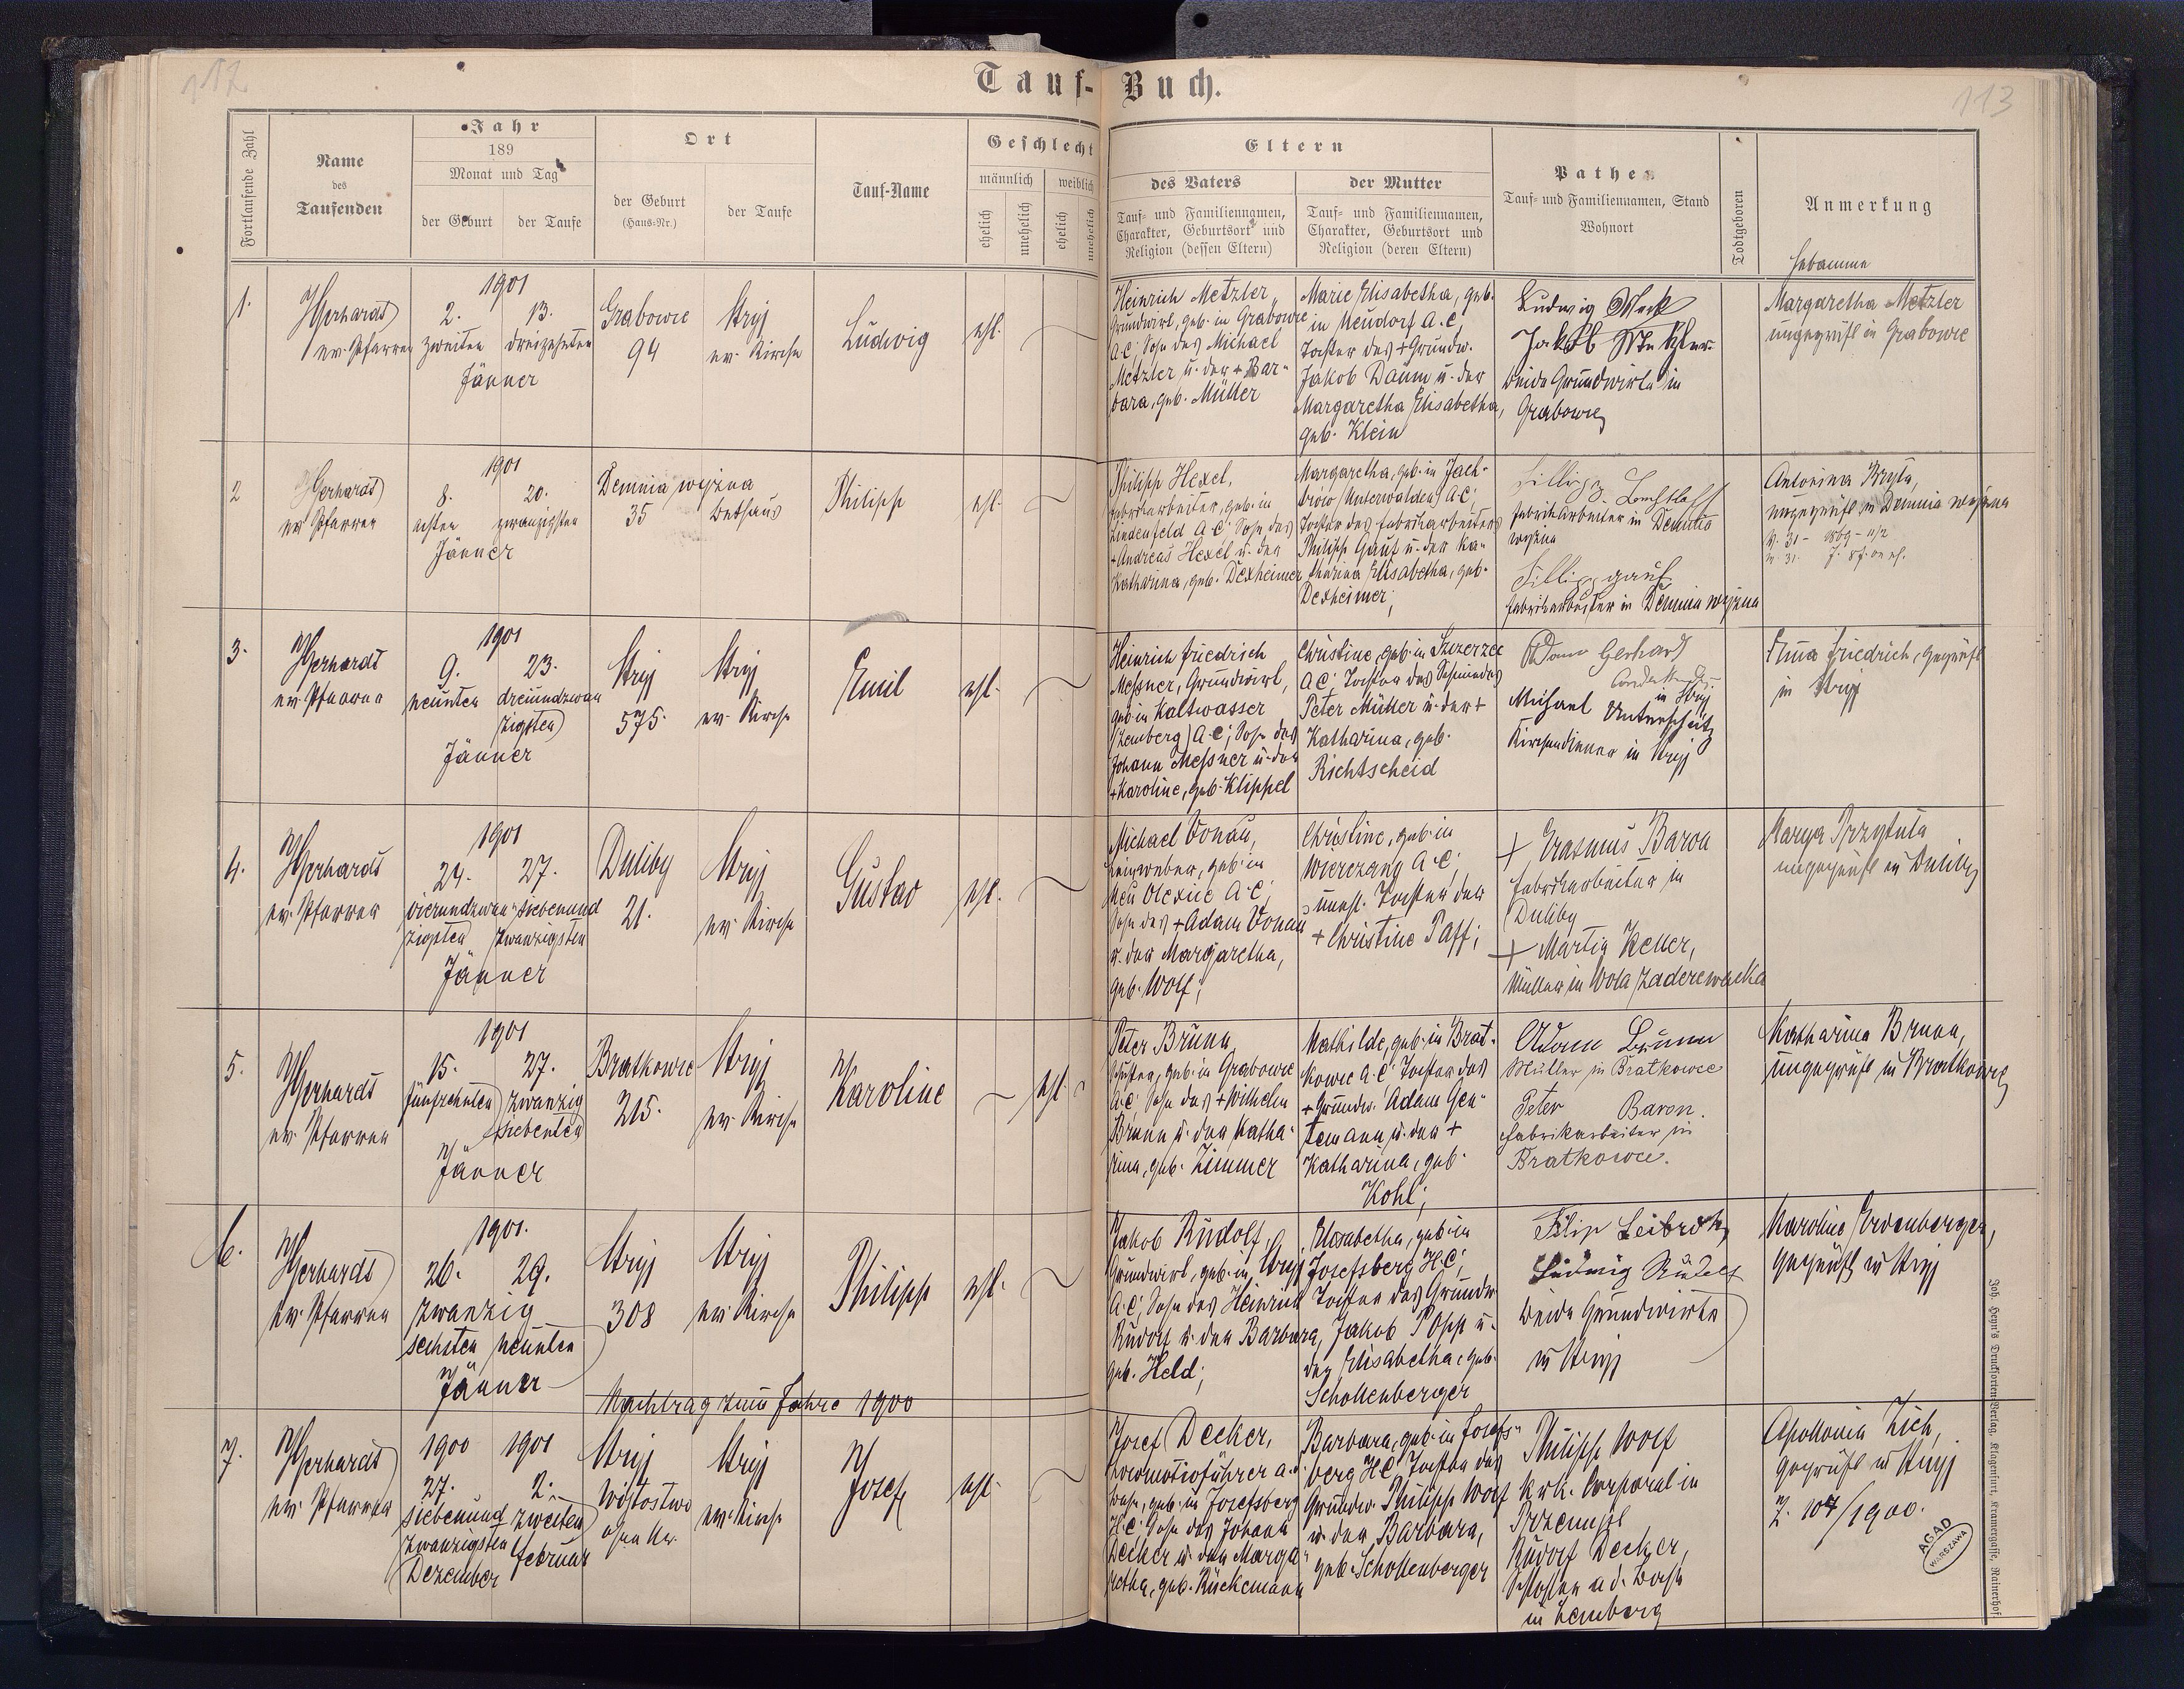 112
113
Tauf-Buch.
Fortlaufende Zahl
Name
des
Taufenden
Jahr
189
Monat und Tag
der Geburt
der Taufe
Ort
der Geburt
(Haus-Nr.)
der Taufe
Tauf-Name
Geschlecht
männlich
weiblich
ehelich
unehelich
ehelich
unehelich
Eltern
des Vaters
Tauf- und Familiennamen,
Charakter, Geburtsort und
Religion (dessen Eltern)
der Mutter
Tauf- und Familiennamen,
Charakter, Geburtsort und
Religion (deren Eltern)
Pathen
Tauf- und Familiennamen, Stand
Wohnort
Todtgeboren
Anmerkung
Hebamme
1.
Gerhardt
ev. Pfarrer
1901
2.
zweiten
13.
dreizehnten
Jänner
Grabowce
94
Stryj
ev. Kirche
Ludwig
ehl.
Heinrich Metzler,
Grundwirt, geb. in Grabowce
A.C; Sohn des Michael
Metzler u. der + Bar-
bara, geb. Müller
Marie Elisabetha, geb.
in Neudorf A.C,
Tochter des + Grundw.
Jakob Daum u. der
Margaretha Elisabetha,
geb. Klein
Ludwig
Jakob
beide Grundwirte in
Grabowce
Margaretha Metzler
ungeprüft in Grabowce
2
Gerhardt
ev. Pfarrer
1901
8.
achten
20.
zwanzigsten
Jänner
Demnia wyżna
35
Bethaus
Philipp
ehl.
Philipp Hexel,
Fabriksarbeiter, geb. in
Lindenfeld A.C; Sohn des
+ Andreas Hexel u. der
Katharina, geb. Dexheimer
Margaretha, geb. in Jack-
trów (Unterwalden) A.C;
Tochter des Fabriksarbeiters
Philipp Gauf u. der Ka-
tharina Elisabetha, geb.
Dexheimer;
Fabriksarbeiter in Demnia
wyżna
Fillipp gauf
Fabriksarbeiter in Demnia wyżna
Antonina Bryła,
ungeprüft in Demnia wyżna
3.
Gerhardt
ev. Pfarrer
1901
9.
neunten
23.
dreiundzwan
zigsten
Jänner
Stryj
575.
Stryj
ev. Kirche
Emil
ehl.
Heinrich Friedrich
Messner, Grundwirt,
geb. in Kaltwasser
(Lemberg) A.C; Sohn des
Johann Messner u. der
+ Karoline, geb. Klippel
Christine, geb. in Szczerzec
A.C; Tochter des Schmiedes
Peter Müller u. der +
Katharina, geb.
Richtscheid
Adam Gerhard
in Stryj
Michael Unterschütz
Kirchendiener in Stryj
Anna Friedrich, geprüft
in Stryj
4.
Gerhardt
ev. Pfarrer
1901
24.
vierundzwan-
zigsten
27.
siebenund
zwanzigsten
Jänner
Duliby
21.
Stryj
ev. Kirche
Gustav
ehl.
Michael Vonau,
Leinweber, geb. in
Neu Olexice A.C;
Sohn des + Adam Vonau
u. der Margaretha,
geb. Wolf;
Christine, geb. in
Wierczany A.C;
unehl. Tochter der
+ Christine Paff;
+ Erasmus Baron
Fabriksarbeiter in
Duliby
+ Martin Keller,
Müller in Wola Zaderewacka
Marya Przytuła
ungeprüft in Duliby
5.
Gerhardt
ev. Pfarrer
1901
15.
fünfzehnten
27.
zwanzig
siebenten
Jänner
Bratkowce
215.
Stryj
ev. Kirche
Karoline
ehl.
Peter Brunn,
Schuster, geb. in Grabowce
A.C; Sohn des + Wilhelm
Brunn u. der Katha-
rina, geb. Zimmer
Mathilde, geb. in Brat-
kowce A.C; Tochter des
+ Grundw. Adam Gen-
temann u. der +
Katharina, geb.
Kohl;
Adam Brunn
Müller in Bratkowce
Peter Baron.
Fabrikarbeiter in
Bratkowce.
Katharina Brunn,
ungeprüft in Bratkowce
6.
Gerhardt
ev. Pfarrer
1901.
26.
29.
zwanzig
sechsten
neunten
Jänner
Stryj
308
Stryj
ev. Kirche
Philipp
ehl.
Jakob Rudolf,
Grundwirt, geb. in Stryj
A.C; Sohn des Heinrich
Rudolf u. der Barbara,
geb. Held;
Elisabetha, geb. in
Josefsberg H.C;
Tochter des Grundw.
Jakob Popp u.
der Elisabetha, geb.
Schollenberger
Filip Leibrock
Ludwig Rudolf
beide Grundwirte
in Stryj
Karoline Ehrenberger,
geprüft in Stryj
Nachtrag zum Jahre 1900
7.
Gerhardt
ev. Pfarrer
1900
27.
siebenund
zwanzigsten
Dezember
1901
2.
zweiten
Februar
Stryj
Wojtostwo
ohne Nr.
Stryj
ev. Kirche
Josef
ehl.
Josef Decker,
Locomotivführer a.d.
Bahn, geb. in Josefsberg
H.C; Sohn des Johann
Decker u. der Marga-
retha, geb. Rückemann
Barbara, geb. in Josefs-
berg H.C; Tochter des
Grundw. Philipp Wolf
u. der Barbara,
geb. Schollenberger
Philipp Wolf
k.u.k. Corporal in
Przemysl
Rudolf Decker,
Schlosser a.d. Bahn
in Lemberg
Apollonia Zich,
geprüft in Stryj
Z. 107/1900.
AGAD
WARSZAWA
Joh. Heyn's Drucksorten-Verlag, Klagenfurt, Kramergasse, Rainerhof.